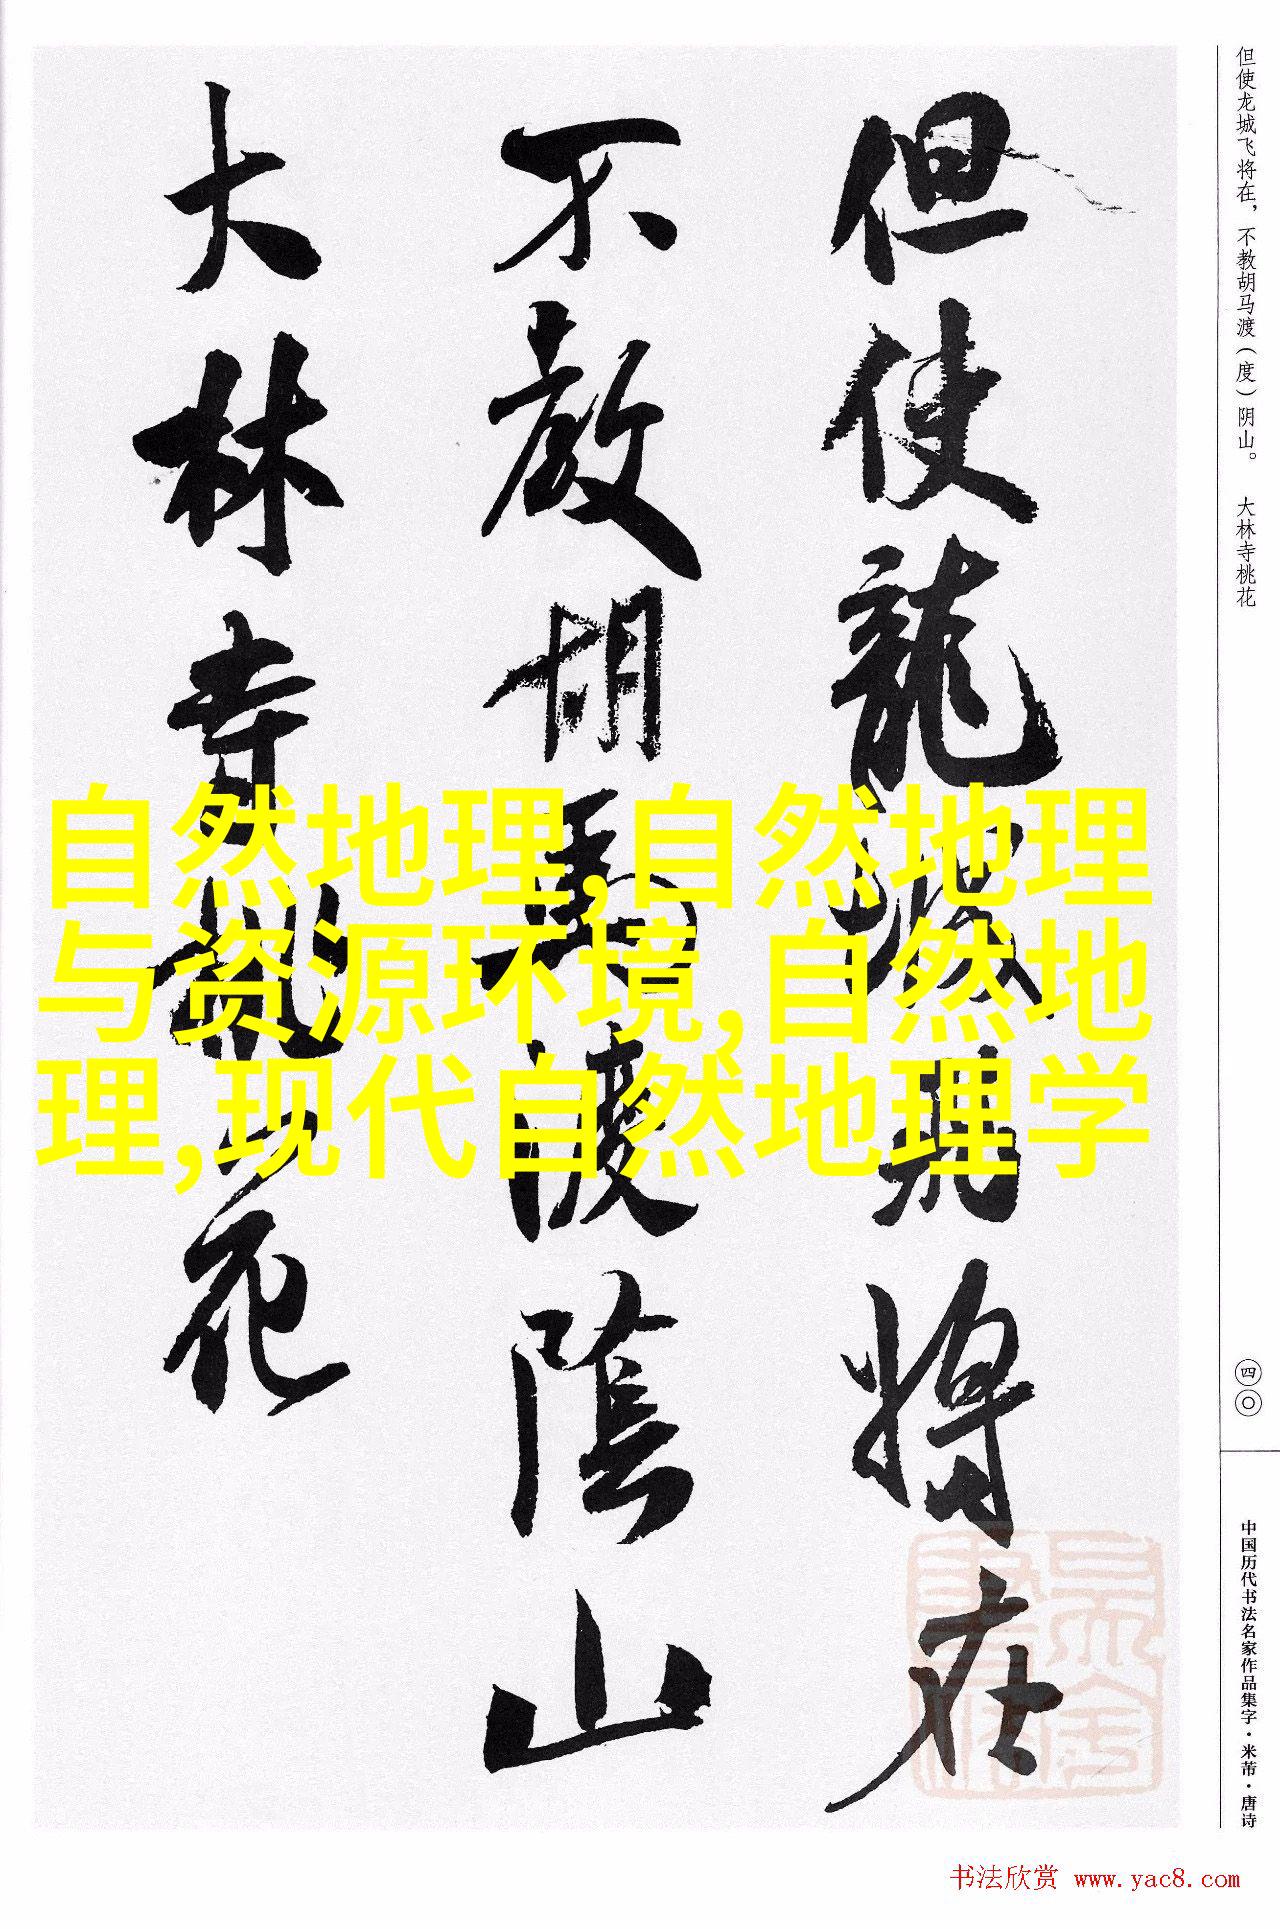 但使龙城飞将在，不教胡马渡（度）阴山。 大林寺桃花
但使龍城飛将在
不教胡馬渡陰山
大林寺桃花
自然地理,自然地理
与资源环境,自然地
理,现代自然地理学
四〇
中国历代书法名家作品集字·米芾·唐诗
书法欣赏 www.yac8.com